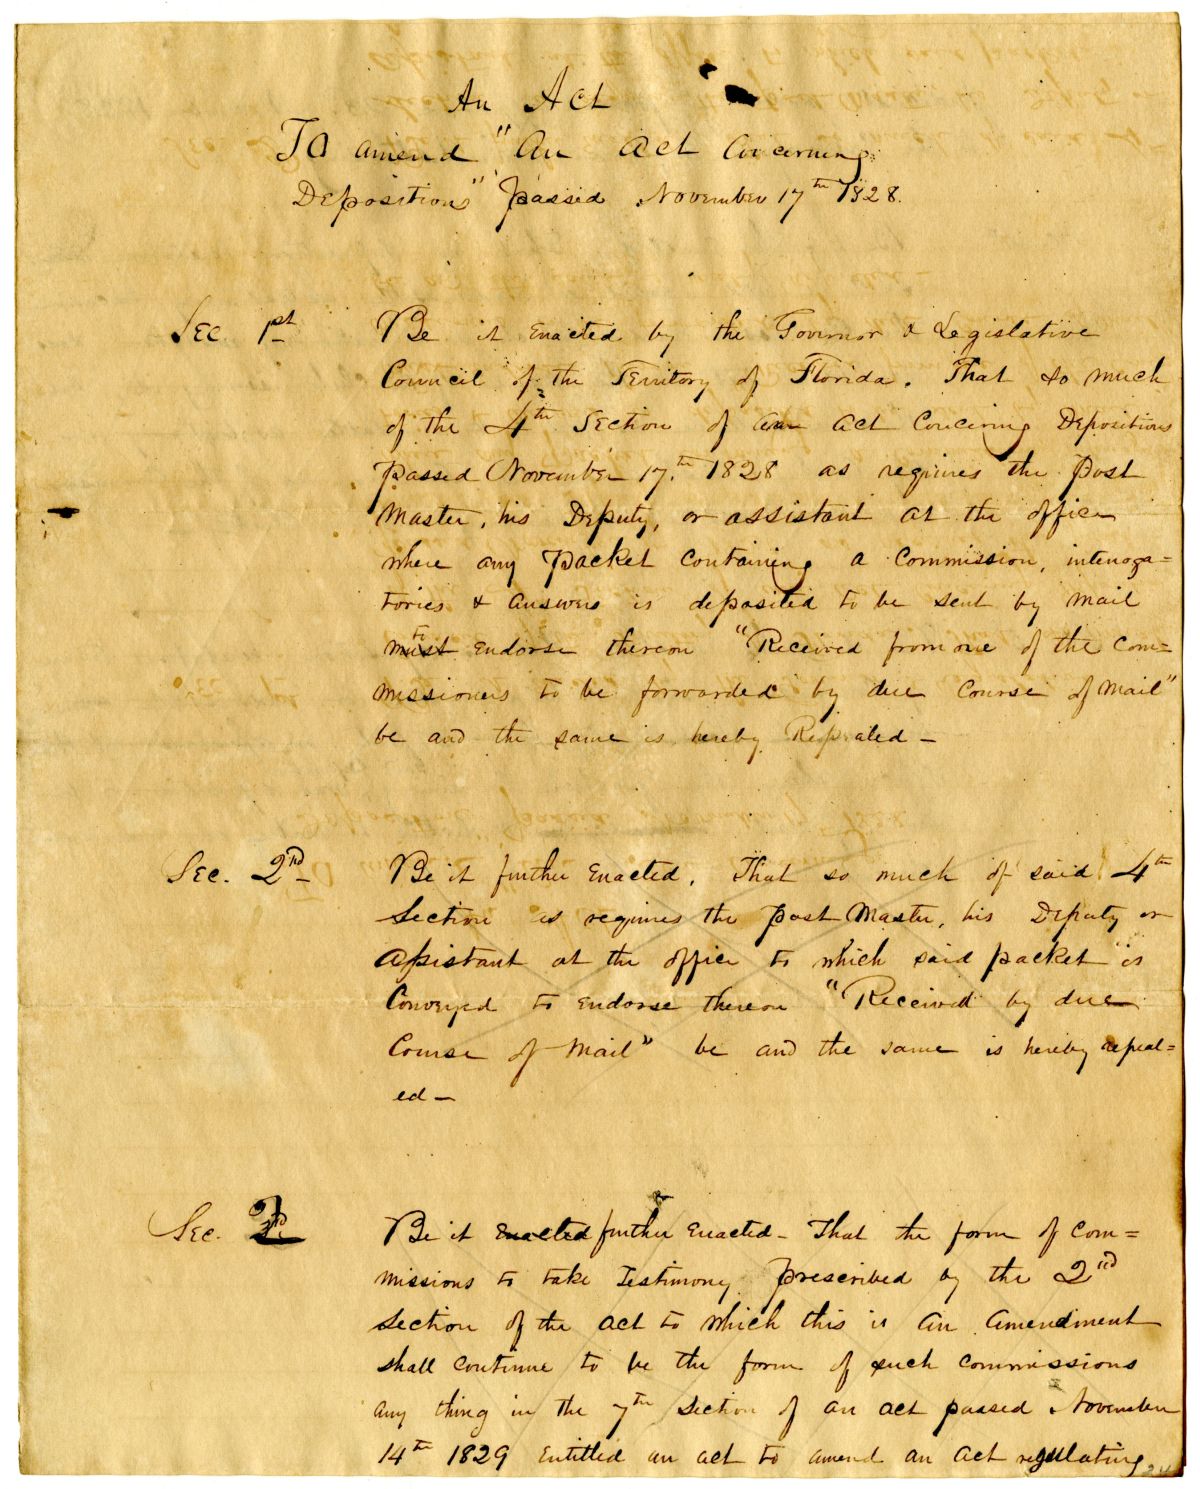 An Act
To amend "An act Concerning
Depositions" passed November 17th 1828.
Sec. 1st Be it Enacted by the Governor & Legislative
Council of the Territory of Florida. That so much
of the 4th Section of an act Concering Depositions
passed November 17th 1828 as requires the Post
Master, his Deputy, or assistant at the office
where any packet containing a Commission, interroga=
tories & answers is deposited to be sent by mail
must to endorse thereon "Received from one of the Com=
missioners to be forwarded by due Course of Mail"
be and the same is hereby Repealed –
Sec. 2nd Be it further Enacted. That so much of said 4th
Section as requires the post Master, his Deputy or
assistant at the office to which said packet is
Conveyed to endorse thereon "Received by due
Course of Mail" be and the same is hereby repeal=
ed –
Sec. 2 Be it Enacted further Enacted – That the form of Com=
missions to take Testimony prescribed by the 2nd
Section of the act to which this is an amendment
shall continue to be the form of such Commissions
any thing in the 7th Section of an act passed November
14th 1829 Entitled an act to amend an act regulating